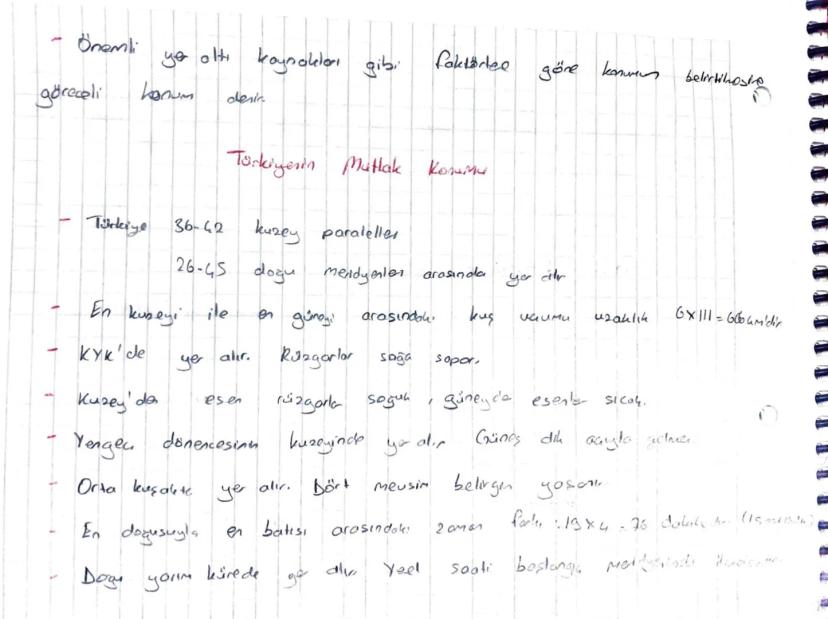 - Önemli yer altı kaynakları gibi faktörlere göre konumun belirtilmesine
göreceli konum denir.
Türkiyenin Mutlak Konumu
- Türkiye 36-42 kuzey paraleller
26-45 doğu meridyenler arasında yer alır
- En kuzeyi ile en güneyi arasındaki kuş uçumu uzaklık 6x111=666km'dir
- KYK'de yer alır. Rüzgarlar sağa sapar.
- Kuzey'de esen rüzgarla soğuk, güneyde esenler sıcak.
- Yengeç dönencesinin kuzeyinde yer alır Güneş dik açıyla gelmez
- Orta kuşakta yer alır. Dört mevsim belirgin yaşanır
- En doğusuyla en batısı arasındaki zaman farkı: 19x4=76 dakika
- Doğu yarım kürede yer alır Yerel saati başlangıç meridyeninden